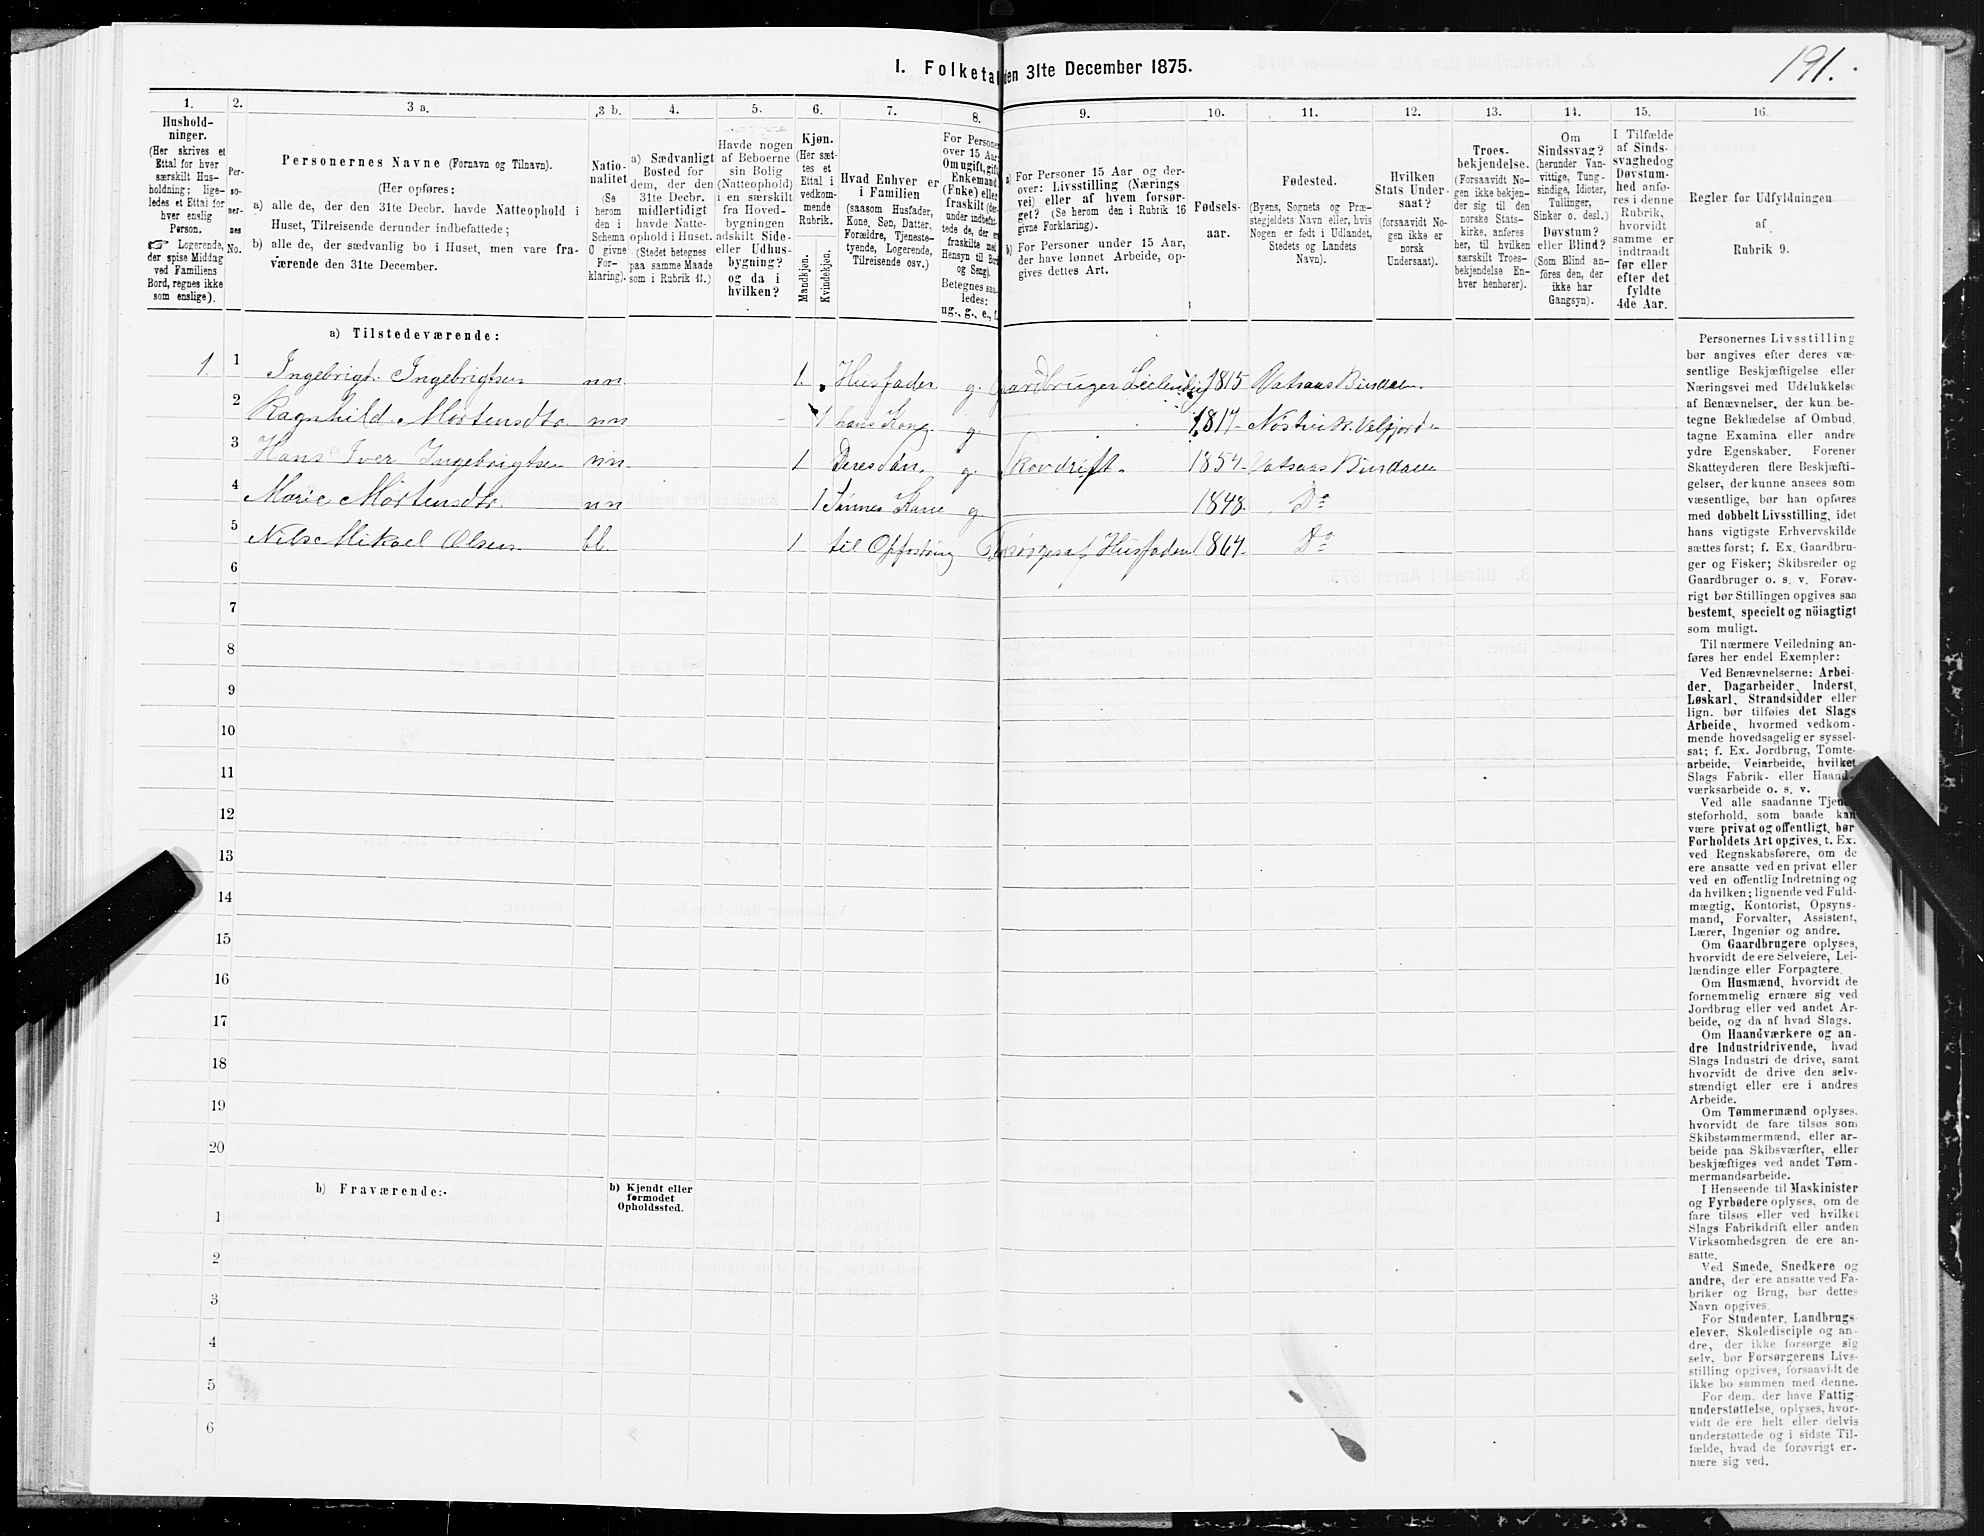 191.
1. Folketal den 31te December 1875.
1. 2. 3 a. 3 b. 4. 5. 6. 7. 8. 9. 10. 11. 12. 13. 14. 15. 16.
Hushold-
ninger.
(Her skrives et
Ettal for hver
særskilt Hus-
holdning; lige-
ledes et Ettal for
hver enslig
Person.
☞ Logerende,
der spise Middag
ved Familiens
Bord, regnes ikke
som enslige).
Per-
so-
ner-
nes
No.
Personernes Navne (Fornavn og Tilnavn).
(Her opføres:
a) alle de, der den 31te Decbr. havde Natteophold i
Huset, Tilreisende derunder indbefattede;
b) alle de, der sædvanlig bo i Huset, men vare fra-
værende den 31te December.
Natio-
nalitet
(Se
herom
den i
Schema
0 givne
For-
klaring).
a) Sædvanligt
Bosted for
dem, der den
31te Decbr.
midlertidigt
havde Natte-
ophold i Huset.
(Stedet betegnes
paa samme Maade
som i Rubrik 11.)
Havde nogen
af Beboerne
sin Bolig
(Natteophold)
i en særskilt
fra Hoved-
bygningen
adskilt Side-
eller Udhus-
bygning?
og da i
hvilken?
Kjøn.
(Her sæt-
tes et
Ettal i
vedkom-
mende
Rubrik.
Mandkjøn.
Kvindekjøn.
Hvad Enhver er
i Familien
(saasom Husfader,
Kone, Søn, Datter,
Forældre, Tjeneste-
tyende, Logerende,
Tilreisende osv.)
For Personer
over 15 Aar:
Om ugift, gift,
Enkemand
(Enke) eller
fraskilt
Betegnes saa-
ledes:
ug., g., e., f.
a) For Personer 15 Aar og der-
over: Livsstilling (Nærings-
vei) eller af hvem forsør-
get? (Se herom den i Rubrik 16
givne Forklaring).
b) For Personer under 15 Aar,
der have lønnet Arbeide, op-
gives dettes Art.
Fødsels-
aar.
Fødested.
(Byens, Sognets og Præ-
stegjeldets Navn eller, hvis
Nogen er født i Udlandet,
Stedets og Landets
Navn).
Hvilken
Stats Under-
saat?
(forsaavidt No-
gen ikke er
norsk
Undersaat).
Troes-
bekjendelse.
(Forsaavidt No-
gen ikke bekjen-
der sig til den
norske Stats-
kirke, anføres
her, til hvilken
særskilt Troes-
bekjendelse En-
hver henhører).
Om
Sindssvag?
(herunder Van-
vittige, Tung-
sindige, Idioter,
Tullinger,
Sinker o. desl.)
Døvstum?
eller Blind?
(Som Blind an-
føres den, der
ikke har
Gangsyn).
I Tilfælde
af Sinds-
svaghed og
Døvstum-
hed anfø-
res i denne
Rubrik,
hvorvidt
samme er
indtraadt
før eller
efter det
fyldte
4de Aar.
Regler for Udfyldningen
af
Rubrik 9.
a) Tilstedeværende:
1. 1 Ingebrigt Ingebrigtsen nn 1. Husfader g. Gaardbruger Leilending 1815 Vatsaas Bindalen
2 Ragnhild Mortensdtr nn 1 hans Kone g. 1817 Nostvik Velfjorden
3 Hans Iver Ingebrigtsen nn 1 Deres Søn g. Skovdrift. 1854 Vatsaas Bindalen
4 Marie Mortensdtr. nn 1 Sønnes Kone g. 1848 Do
5 Nils Mikael Olsen bl. 1 til Opfostring Forsørges af Husfaderen 1864 Do
6
7
8
9
10
11
12
13
14
15
16
17
18
19
20
b) Fraværende:
b) Kjendt eller
formodet
Opholdssted.
1
2
3
4
5
6
Personernes Livsstilling
bør angives efter deres væ-
sentlige Beskjæftigelse eller
Næringsvei med Udelukkelse
af Benævnelser, der kun be-
tegne Beklædelse af Ombud,
tagne Examina eller andre
ydre Egenskaber. Forener
Skatteyderen flere Beskjæfti-
gelser, der kunne ansees som
væsentlige, bør han opføres
med dobbelt Livsstilling, idet
hans vigtigste Erhvervskilde
sættes først; f. Ex. Gaardbru-
ger og Fisker; Skibsreder og
Gaardbruger o. s. v. Forøv-
rigt bør Stillingen opgives saa
bestemt, specielt og nöiagtigt
som muligt.
Til nærmere Veiledning an-
føres her endel Exempler:
Ved Benævnelserne: Arbei-
der, Dagarbeider, Inderst,
Løskarl, Strandsidder eller
lign. bør tilføies det Slags
Arbeide, hvormed vedkom-
mende hovedsagelig er syssel-
sat; f. Ex. Jordbrug, Tomte-
arbeide, Veiarbeide, hvilket
Slags Fabrik- eller Haand-
værksarbeide o. s. v.
Ved alle saadanne Tjene-
steforhold, som baade kan
være privat og offentligt, bør
Forholdets Art opgives, t. Ex.
ved Regnskabsførere, om de
ere ansatte ved en privat eller
ved en offentlig Indretning og
da hvilken; lignende ved Fuld-
mægtig, Kontorist, Opsyns-
mand, Forvalter, Assistent,
Lærer, Ingeniør og andre.
Om Gaardbrugere oplyses,
hvorvidt de ere Selveiere, Lei-
lændinge eller Forpagtere.
Om Husmænd, hvorvidt de
fornemmelig ernære sig ved
Jordbrug eller ved andet Ar-
beide, og da af hvad Slags.
Om Haandværkere og an-
dre Industridrivende, hvad
Slags Industri de drive, samt
hvorvidt de drive den selv-
stændigt eller ere i andres
Arbeide.
Om Tømmermænd oplyses,
hvorvidt de fare tilsøs som
Skibstømmermænd, eller ar-
beide paa Skibsværfter, eller
beskjæftiges ved andet Tøm-
mermandsarbeide.
I Henseende til Maskinister
og Fyrbødere oplyses, om de
fare tilsøs eller ved hvilket
Slags Fabrikdrift eller anden
Virksomhedsgren de ere an-
satte.
Ved Smede, Snedkere og
andre, der ere ansatte ved Fa-
briker og Brug, bør dettes
Navn opgives.
For Studenter, Landbrugs-
elever, Skoledisciple og an-
dre, der ikke forsørge sig
selv, bør Forsørgerens Livs-
stilling opgives, forsaavidt de
ikke bo sammen med denne.
For dem, der have Fattig-
understøttelse, oplyses, hvor-
vidt de ere helt eller delvis
understøttede og i sidste Til-
fælde, hvad de forøvrigt er-
nære sig ved.